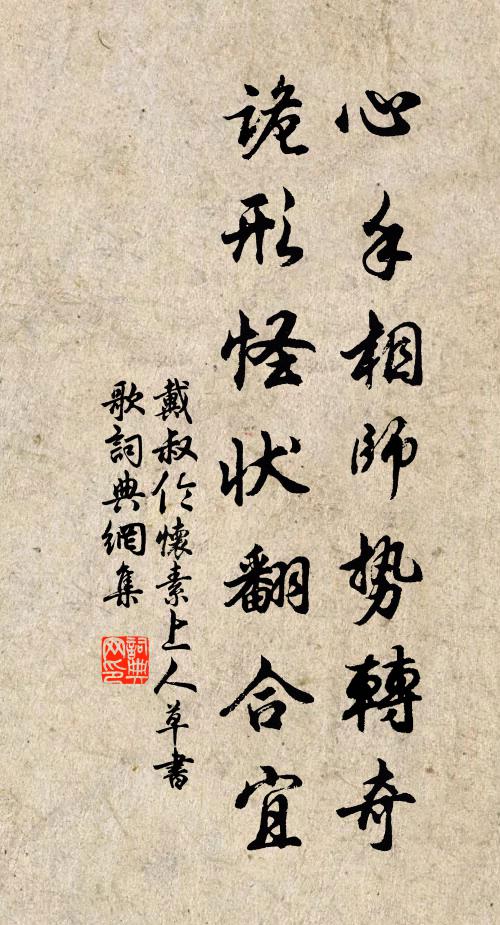 心手相師势轉奇
詭形怪状翻合宜
戴叔伦懷素上人草書
歌詞典網集
詞典
网印